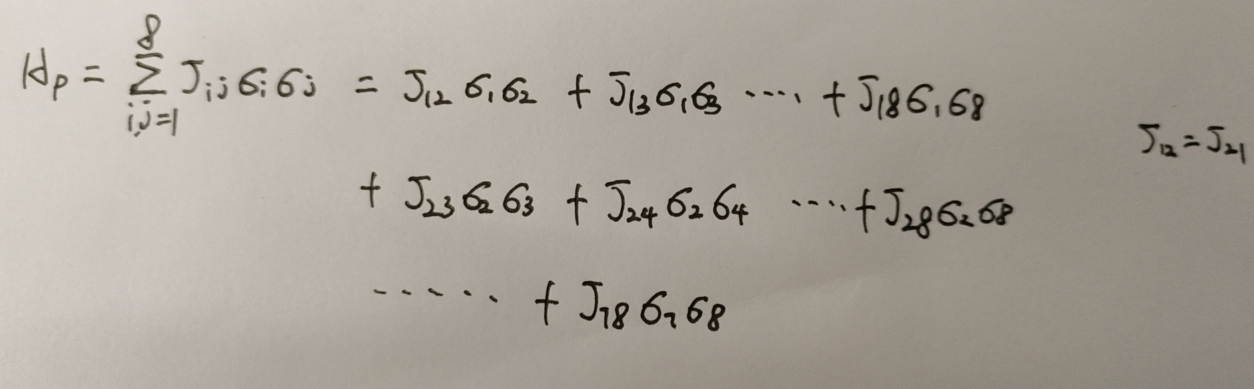 Hp = Σ_{i,j=1}^{8} J_{ij} σ_i σ_j = J_{12} σ_1 σ_2 + J_{13} σ_1 σ_3 ···· + J_{18} σ_1 σ_8
J_{12} = J_{21}
+ J_{23} σ_2 σ_3 + J_{24} σ_2 σ_4 ···· + J_{28} σ_2 σ_8
----·· + J_{78} σ_7 σ_8